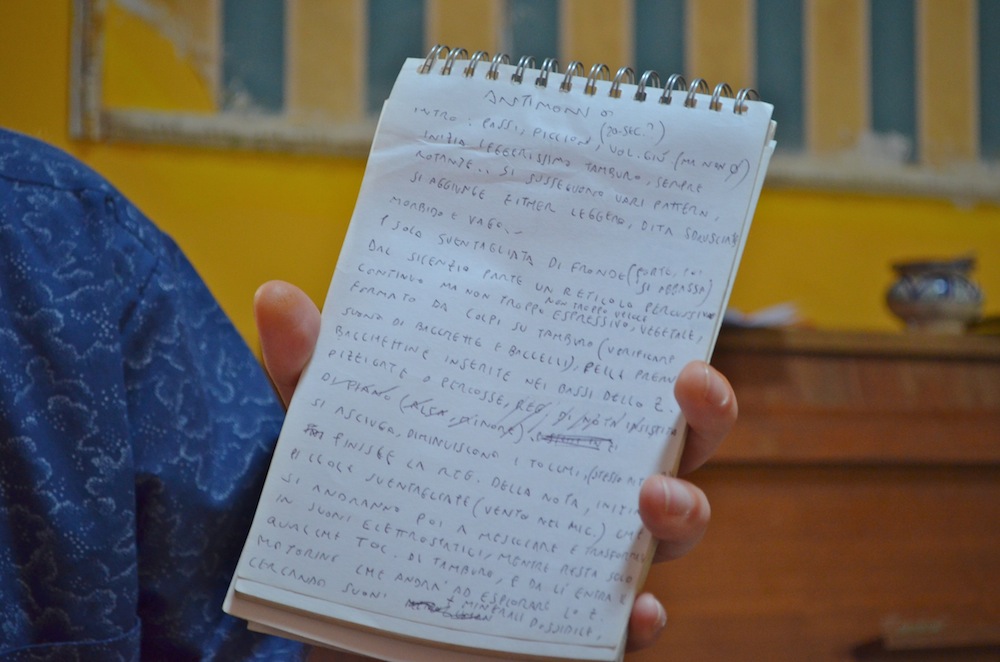 ANTIMONIO
INTRO: PASSI, PICCIONI, VOL. GIÚ (MA NON Ø) (20 SEC.?)
INIZIA LEGGERISSIMO TAMBURO, SEMPRE
ROTANTE.. SI SUSSEGUONO VARI PATTERN,
SI AGGIUNGE ZITHER LEGGERO, DITA
MORBIDO E VAGO..
1 SOLA SVENTAGLIATA DI FRONDE (FORTE, POI SI ABBASSA)
DAL SILENZIO PARTE UN RETICOLO PERCUSSIVO
CONTINUO MA NON TROPPO ESPRESSIVO, VEGETALE,
NON TROPPO VELOCE
FORMATO DA COLPI SU TAMBURO (VERIFICARE
SUONO DI BACCHETTE E BACCELLI), PELLI
BACCHETTINE INSERITE NEI BASSI DELLO Z.
PIZZICATE O PERCOSSE, REG. DI NOTA INSISTITA
DI PIANO
SI ASCIUGA, DIMINUISCONO I TOCCHI,
FINISCE LA REG. DELLA NOTA,
PICCOLE SVENTAGLIATE (VENTO NEL MIC.) CHE
SI ANDRANNO POI A MESCOLARE E
IN SUONI ELETTROSTATICI, MENTRE RESTA SOLO
QUALCHE TOC. DI TAMBURO, E DA LÍ ENTRA IL
MOTORINO CHE ANDRÁ AD ESPLORARE LO Z.
CERCANDO SUONI + MINERALI POSSIBILE,